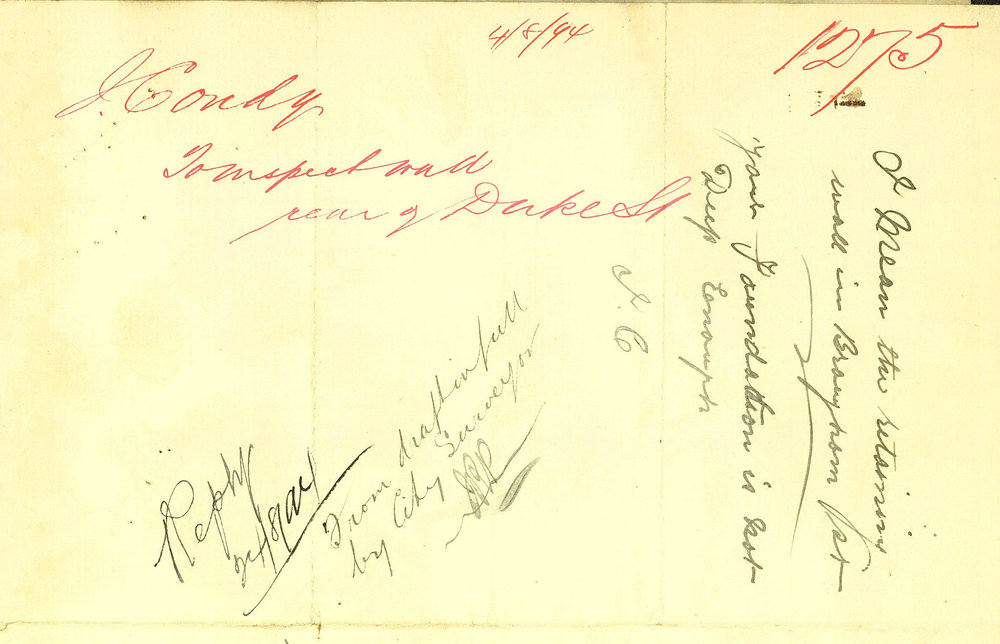 4/8/94
1275
J. Condy
To inspect wall
rear of Duke St
I Mean the retaining
wall in Brougham St
your Foundation is not
Deep Enough
J. C
Reply
From draft in full
by City Surveyor